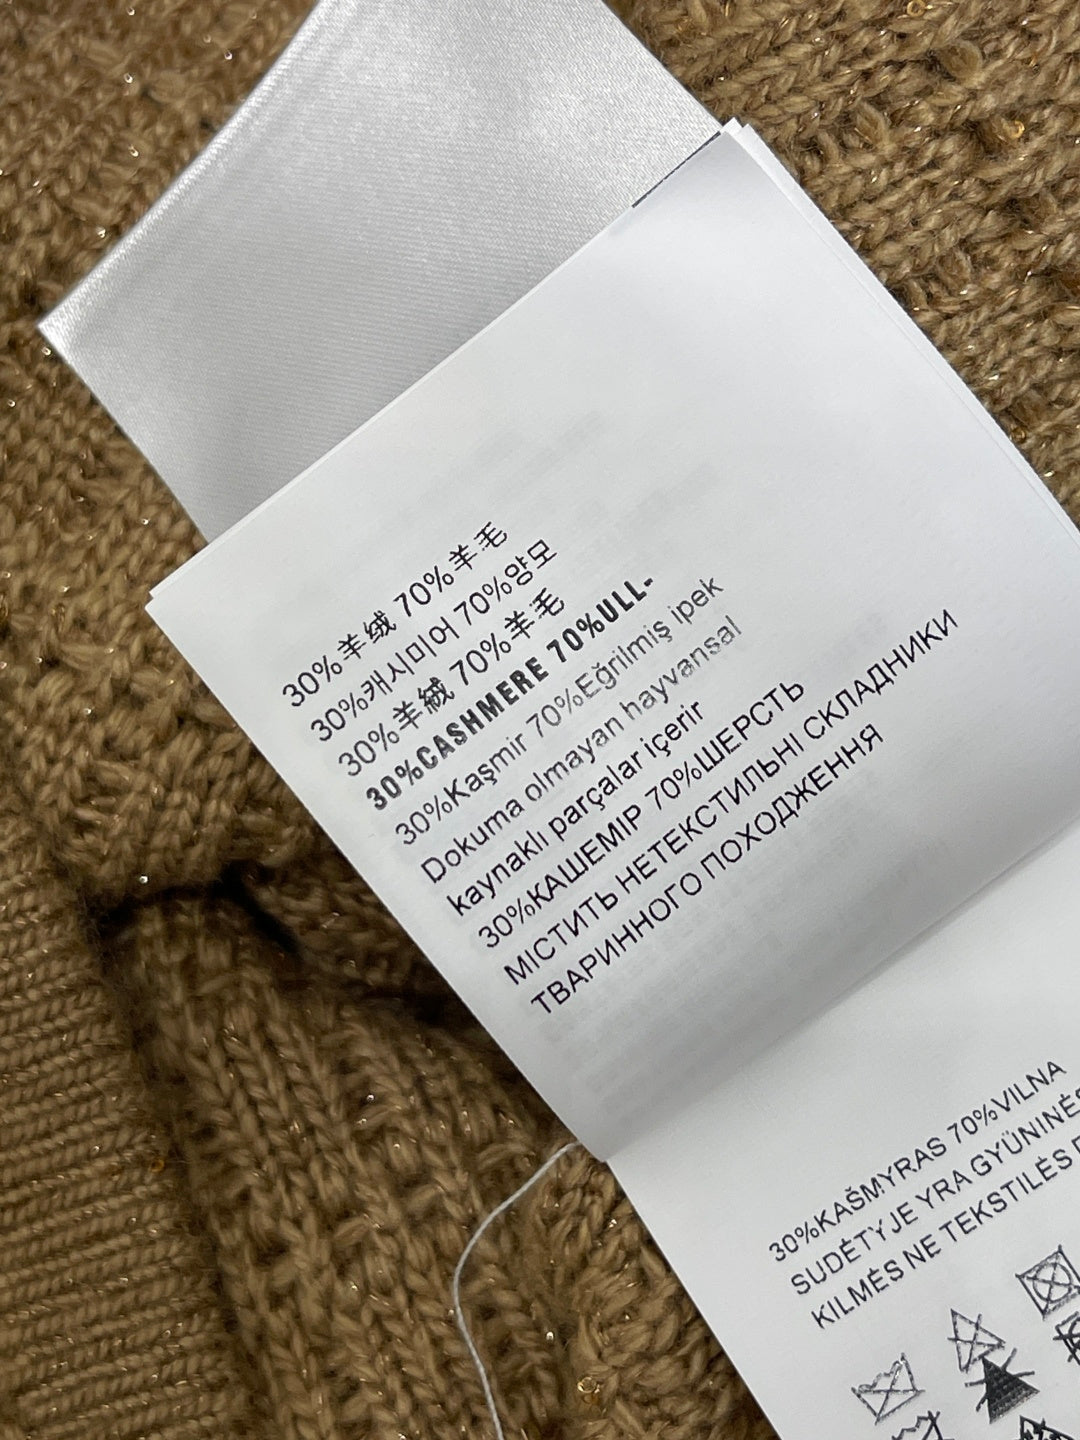 30%羊绒 70%羊毛
30%캐시미어 70%양모
30%羊絨 70%羊毛
30%CASHMERE 70%ULL-
30%Kaşmir 70%Eğrilmiş ipek
Dokuma olmayan hayvansal
kaynaklı parçalar içerir
30%КАШЕМІР 70%ШЕРСТЬ
МІСТИТЬ НЕТЕКСТИЛЬНІ СКЛАДНИКИ
ТВАРИННОГО ПОХОДЖЕННЯ
30%KAŠMYRAS 70%VILNA
SUDĖTYJE YRA GYŪNINĖS
KILMĖS NE TEKSTILĖS